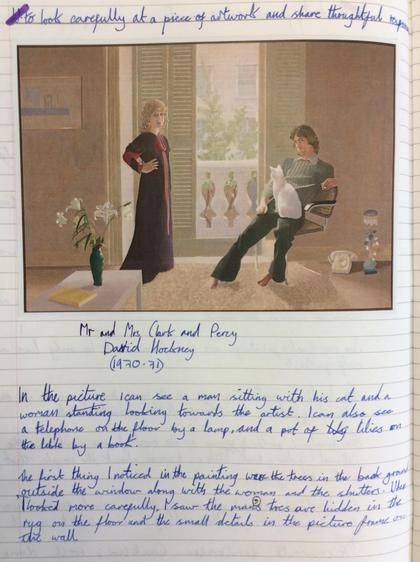 to look carefully at a piece of artwork and share thoughtful
Mr and Mrs Clark and Percy
David Hockney
(1970-71)
In the picture I can see a man sitting with his cat and a
woman standing looking towards the artist. I can also see
a telephone on the floor by a lamp, and a pot of lilies on
the table by a book.
The first thing I noticed in the painting were the trees in the back ground
outside the window along with the woman and the shutters. When
I looked more carefully, I saw the mans toes are hidden in the
rug on the floor and the small details in the picture frame on
the wall